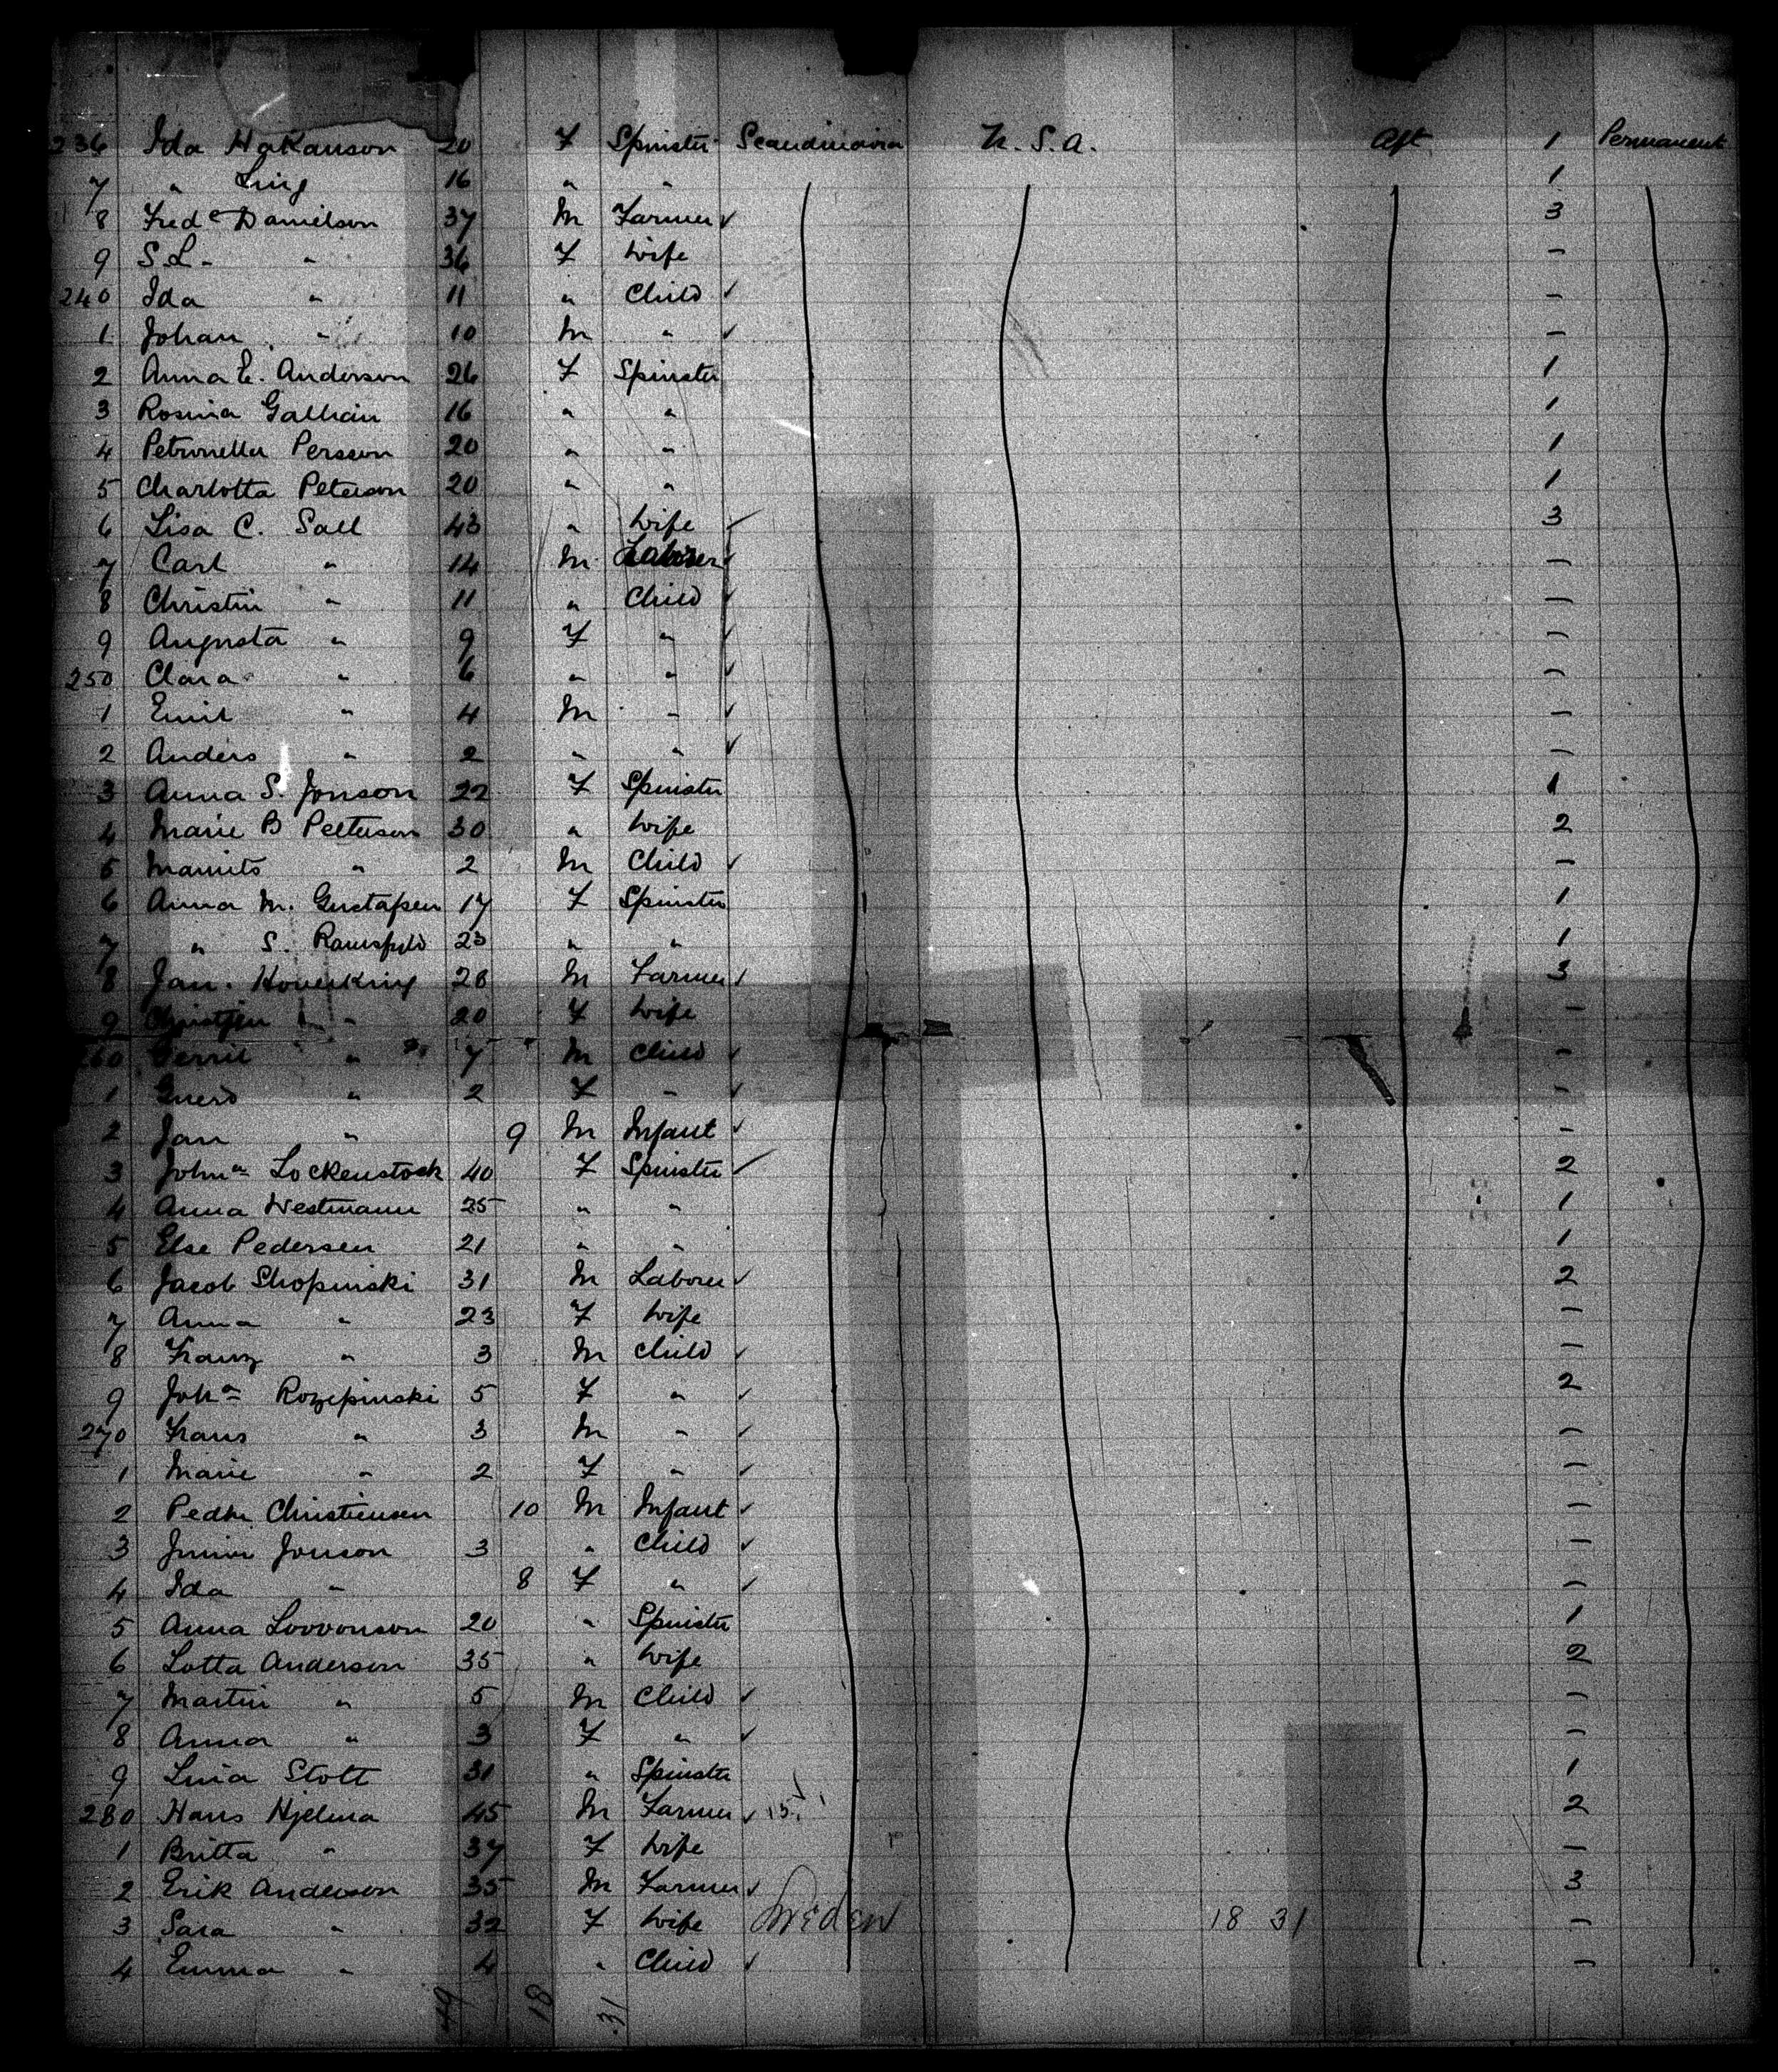 236 Ida Hakanson 20 F Spinster Scandinavia U.S.A. Aft 1 Permanent
7 " Ling 16 " " 1
8 Fred^c Danielson 37 M Farmer ✓ 3
9 S.L. " 36 F Wife —
240 Ida " 11 " Child ✓ —
1 Johan " 10 M " ✓ —
2 Anna E. Anderson 26 F Spinster 1
3 Rosina 16 " " 1
4 Petronella Persson 20 " " 1
5 Charlotta Peterson 20 " " 1
6 Lisa C. Sall 43 " Wife ✓ 3
7 Carl " 14 M Laborer ✓ —
8 Christin " 11 " Child ✓ —
9 Augusta " 9 F " ✓ —
250 Clara " 6 " " ✓ —
1 Emil " 4 M " ✓ —
2 Anders " 2 " " ✓ —
3 Anna S. Jonson 22 F Spinster 1
4 Marie B Petterson 30 " Wife 2
5 " 2 M Child ✓ —
6 Anna M. Gustafsen 17 F Spinster 1
7 " S. 23 " " 1
8 Jan. 28 M Farmer ✓ 3
9 " 20 F Wife —
260 Gerrit " 7 M Child ✓ —
1 " 2 F " ✓ —
2 Jan " 9 M Infant ✓ —
3 John^a Lockenstock 40 F Spinster ✓ 2
4 Anna Westmann 25 " " 1
5 Else Pedersen 21 " " 1
6 Jacob Shopinski 31 M Laborer ✓ 2
7 Anna " 23 F Wife —
8 Franz " 3 M Child ✓ —
9 Joh^a Rozepinski 5 F " ✓ 2
270 Frans " 3 M " ✓ —
1 Marie " 2 F " ✓ —
2 Christiensen 10 M Infant ✓ —
3 Jonson 3 " Child ✓ —
4 Ida " 8 F " ✓ —
5 Anna Lovvonson 20 " Spinster 1
6 Lotta Anderson 35 " Wife 2
7 Martin " 5 M Child ✓ —
8 Anna " 3 F " ✓ —
9 Lina Stott 31 " Spinster 1
280 Hans Hjelma 45 M Farmer ✓ 15 2
1 Britta " 37 F Wife —
2 Erik Anderson 35 M Farmer ✓ 3
3 Sara " 32 F Wife Sweden 18 31 —
4 Emma " 4 " Child ✓ —
49 18 31